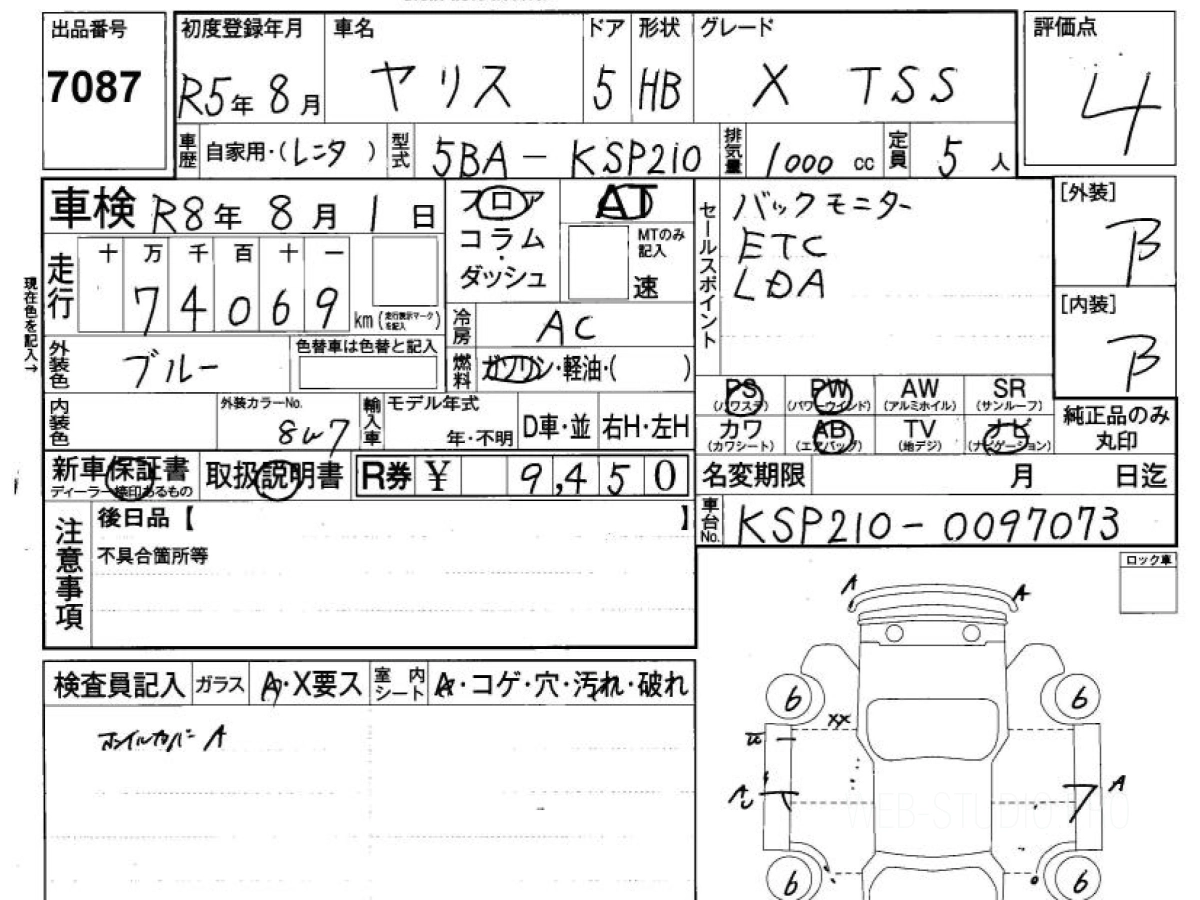 出品番号
7087
初度登録年月 車名 ドア 形状 グレード
R5年8月 ヤリス 5 HB X TSS
車歴 自家用・(レンタ) 型式 5BA-KSP210 排気量 1000 cc 定員 5人
評価点
4
車検 R8年8月1日
フロア
コラム
・
ダッシュ
AT
MTのみ
記入
速
セールスポイント
バックモニター
ETC
LDA
[外装]
B
[内装]
B
現在色を記入→
走行
十 万 千 百 十 一
7 4 0 6 9 km (走行表示マークを記入)
冷房 AC
外装色 ブルー 色替車は色替と記入
燃料 ガソリン・軽油・( )
内装色 外装カラーNo. 8W7
輸入車 モデル年式 年・不明 D車・並 右H・左H
PS (パワステ) PW (パワーウインド) AW (アルミホイル) SR (サンルーフ)
カワ (カワシート) AB (エアバッグ) TV (地デジ) ナビ (ナビゲーション)
純正品のみ
丸印
新車保証書 ディーラー捺印あるもの 取扱説明書 R券 ¥ 9,450
名変期限 月 日迄
車台No. KSP210-0097073
注意事項
後日品【 】
不具合箇所等
ロック車
検査員記入 ガラス A・X要ス 室内シート A・コゲ・穴・汚れ・破れ
ホイルカバー A
A A
6 6
XX
A
A
6 6
WEB-STUDIO.PRO